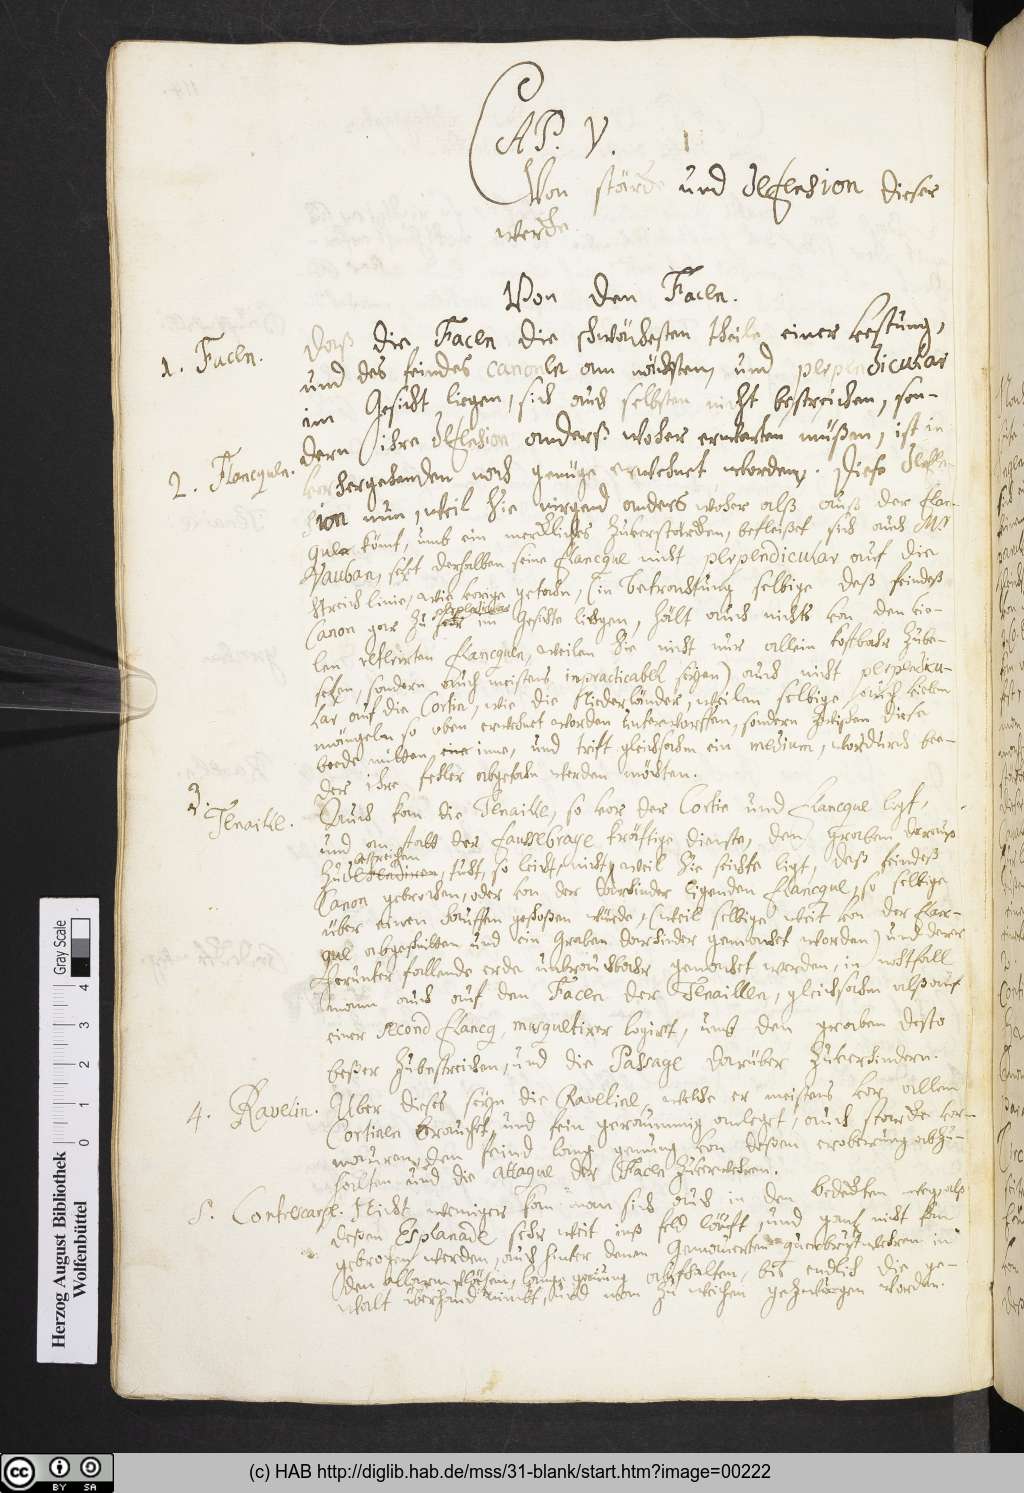 CAP. V.
Von stärcke und defension dieser
wercke
Von den Facen.
1. Facen.
Daß die Facen die schwächesten theile einer Festung,
und des feindes canonen am nächsten, und perpendicular
im Gesicht liegen, sich auch selbsten nicht bestreichen, son-
dern ihre defension anderß woher erwarten müßen, ist in
2. Flancquen.
vorhergehenden noch genüge erwehnet worden. Diese defen-
sion nun, weil sie nirgend anders woher alß auß der flan-
quen kömt, umb ein merckliches zuverstärcken, befleißet sich auch Mr
Vauban, setzt derhalben seine flancque nicht perpendicular auf die
streich linie, wie vorige gethan, (in betrachtung selbige deß feindeß
Canon gar zu sehr perpendicular im Gesichte liegen, hält auch nichts von den vie-
len retirirten flancquen, weilen sie nicht nur allein kostbahr zube-
setzen, sondern auch meistens inpracticabel seyen) auch nicht perpendicu-
lar auf die Cortin, wie die Niederländer, weilen selbige auch vielen
mängeln so oben erwehnet worden unterworffen, sondern zwischen diese
beede mitten inne, und trift gleichsahm ein medium, wordurch bee-
der ihre fehler abgethan werden möchten.
3. Tenaille.
Auch kan die Tenaille, so vor der Cortin und flancque ligt,
und an statt der faussebraye kräftige dienste, den graben darauß
zu bestreichen, thut, so leicht nicht, weil sie seichte ligt, deß feindeß
Canon gebrochen, oder von der darhinder ligenden flancque, so selbige
über einen hauffen geschoßen würde, (weil selbige weit von der flan-
que abgeschnitten und ein Graben darhinder gemachet worden) und derer
herunter fallende erde unbrauchbahr gemachet werden, in nothfall
kann auch auf den Facen der Tenaillen, gleichsahm alß auf
einer second flancq, musquetirer logirt, umb den graben desto
beßer zubestreichen, und die Passage darüber zuverhindern.
4. Ravelin.
Über dieses seyn die Raveline, welche er meistens vor allen
Cortinen braucht, und fein geraumig anleget, auch starcke vor-
mauren, den feind lang genung von deßen eroberung abzu-
halten und die attaque der Facen zuverwehren.
5. Contrescarpe.
Nicht weniger kan man sich auch in den bedeckten weg, alß
deßen Esplanade sehr weit inß feld läuft, und gantz nicht kan
gebrochen werden, auch hinter denen Gemauerten querbrustwehren in
den allarm plätzen, lange genung aufhalten, biß endlich die ge-
walt überhand nimbt, und man zu weichen gezwungen worden.
Herzog August Bibliothek
Wolfenbüttel
0 1 2 3 4
Gray Scale
cc BY SA
(c) HAB http://diglib.hab.de/mss/31-blank/start.htm?image=00222